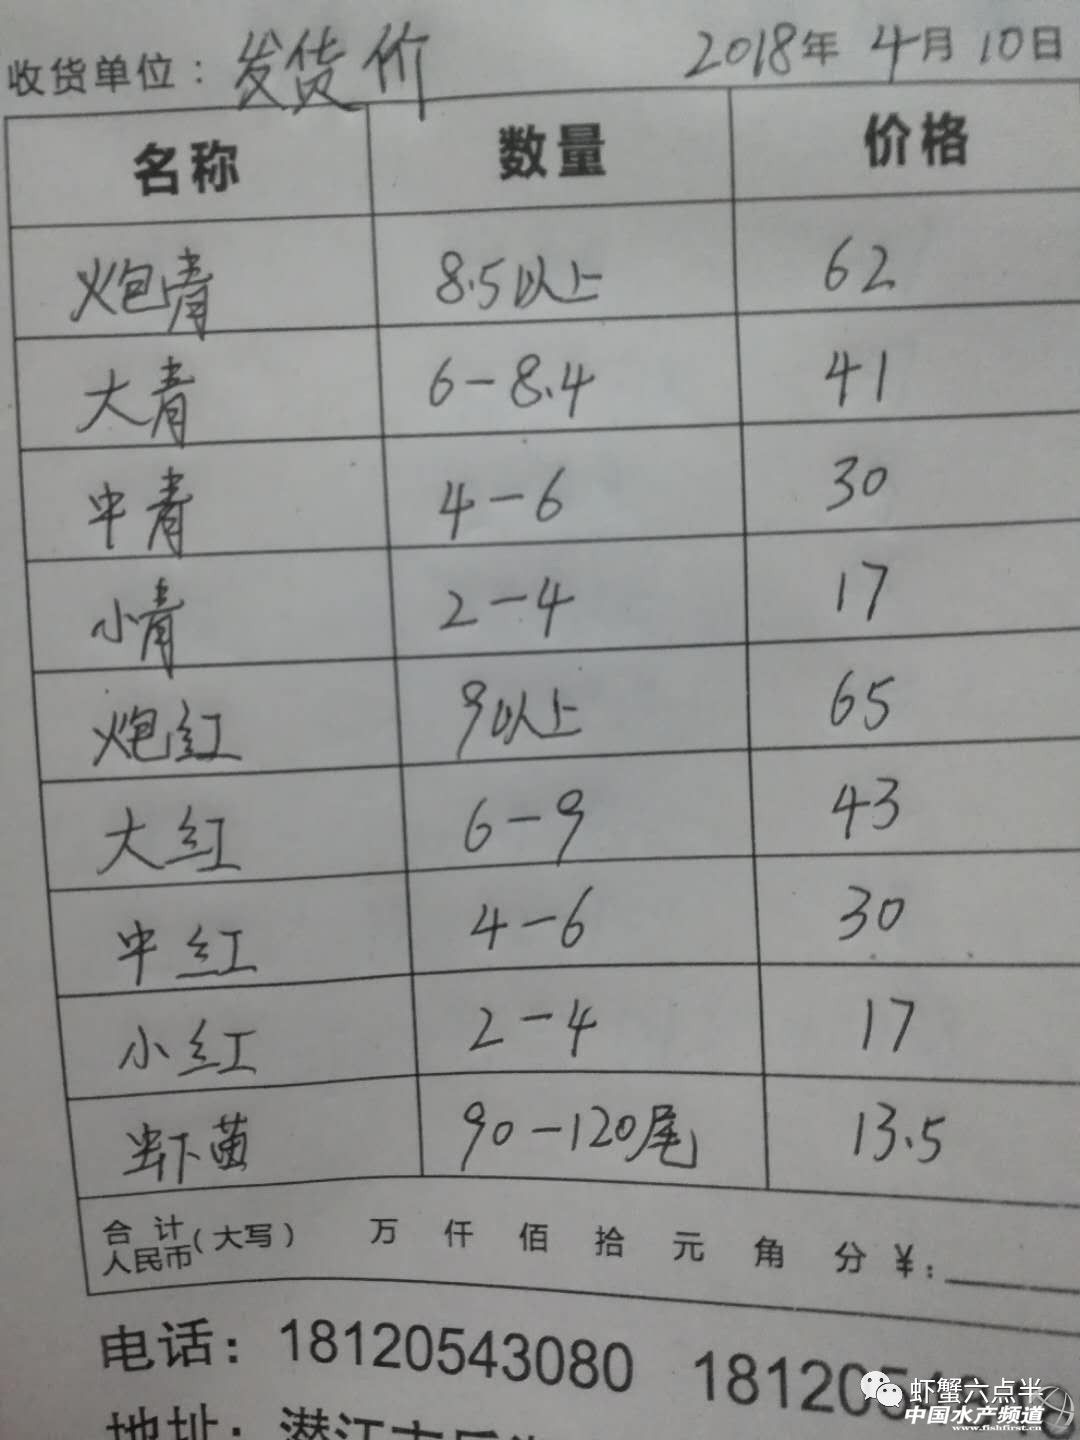 收货单位：发货价 2018年4月10日
名称 数量 价格
炮青 8.5以上 62
大青 6-8.4 41
中青 4-6 30
小青 2-4 17
炮红 9以上 65
大红 6-9 43
中红 4-6 30
小红 2-4 17
虾苗 90-120尾 13.5
合计人民币(大写) 万 仟 佰 拾 元 角 分 ¥：
电话：18120543080 181205
地址：潜江市
虾蟹六点半
中国水产频道
www.fishfirst.cn